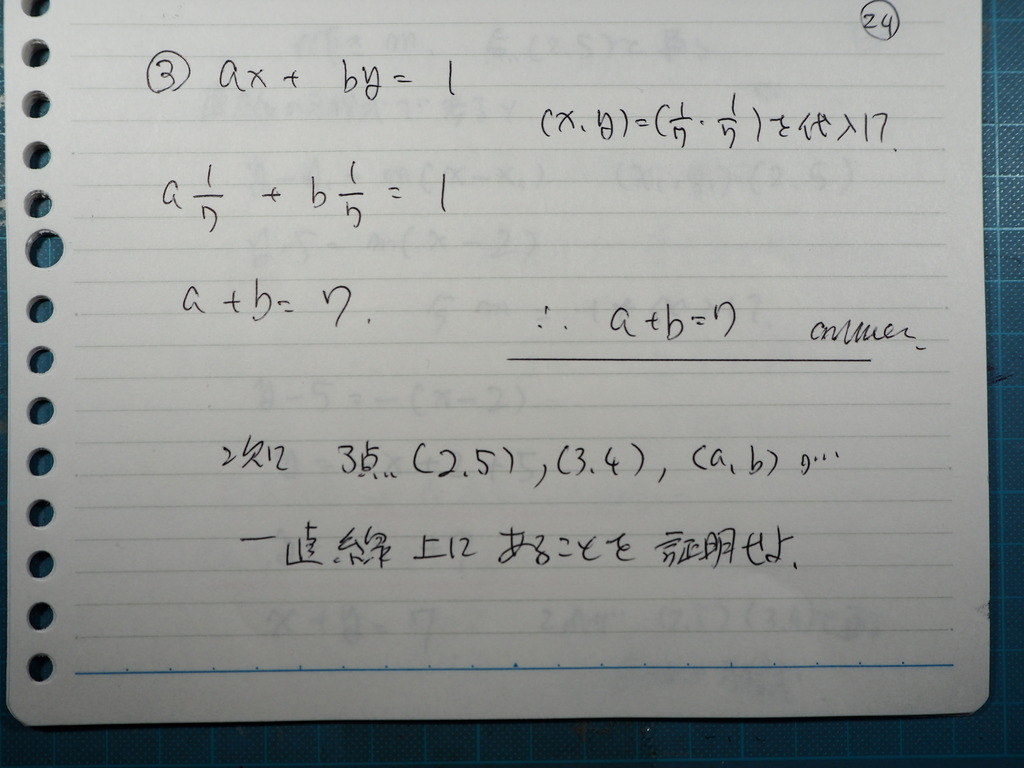 24
③ ax + by = 1
(x, y) = (1/7, 1/7) を代入す
a 1/7 + b 1/7 = 1
a + b = 7.
∴ a + b = 7 answer
次に 3点 (2.5), (3.4), (a, b) が
一直線上にあることを証明せよ.